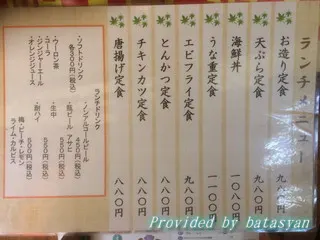 ランチメニュー
お造り定食 九八〇円
天ぷら定食 九八〇円
海鮮丼 一〇八〇円
うな重定食 一一〇〇円
エビフライ定食 九八〇円
とんかつ定食 八八〇円
チキンカツ定食 八八〇円
唐揚げ定食 八八〇円
ランチドリンク
・ソフトドリンク
各300円(税込)
・ウーロン茶
・コーラ
・ジンジャーエール
・オレンジジュース
・ノンアルコールビール
450円(税込)
・瓶ビール アサヒ
・生中
550円(税込)
・酎ハイ
500円(税込)
梅・ピーチ・レモン
ライム・カルピス
Provided by batasyan